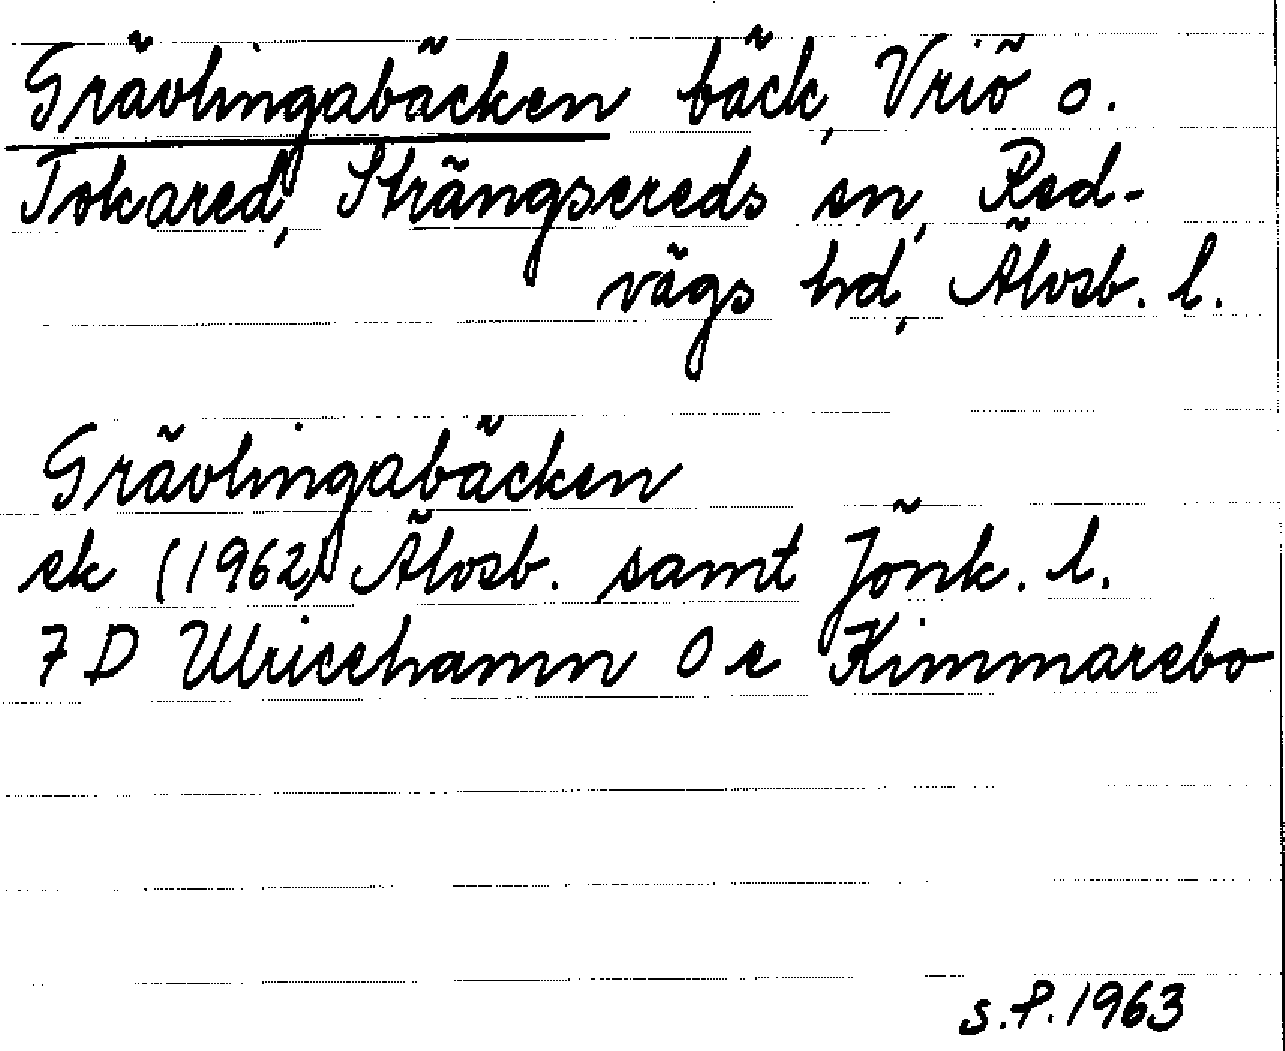 Grävlingabäcken bäck, Vriö o.
Tokared, Strängsereds sn, Red-
vägs hd, Älvsb. l.
Grävlingabäcken
ek (1962) Älvsb. samt Jönk. l.
7 D Ulricehamn 0 e Kimmarebo
S.P. 1963